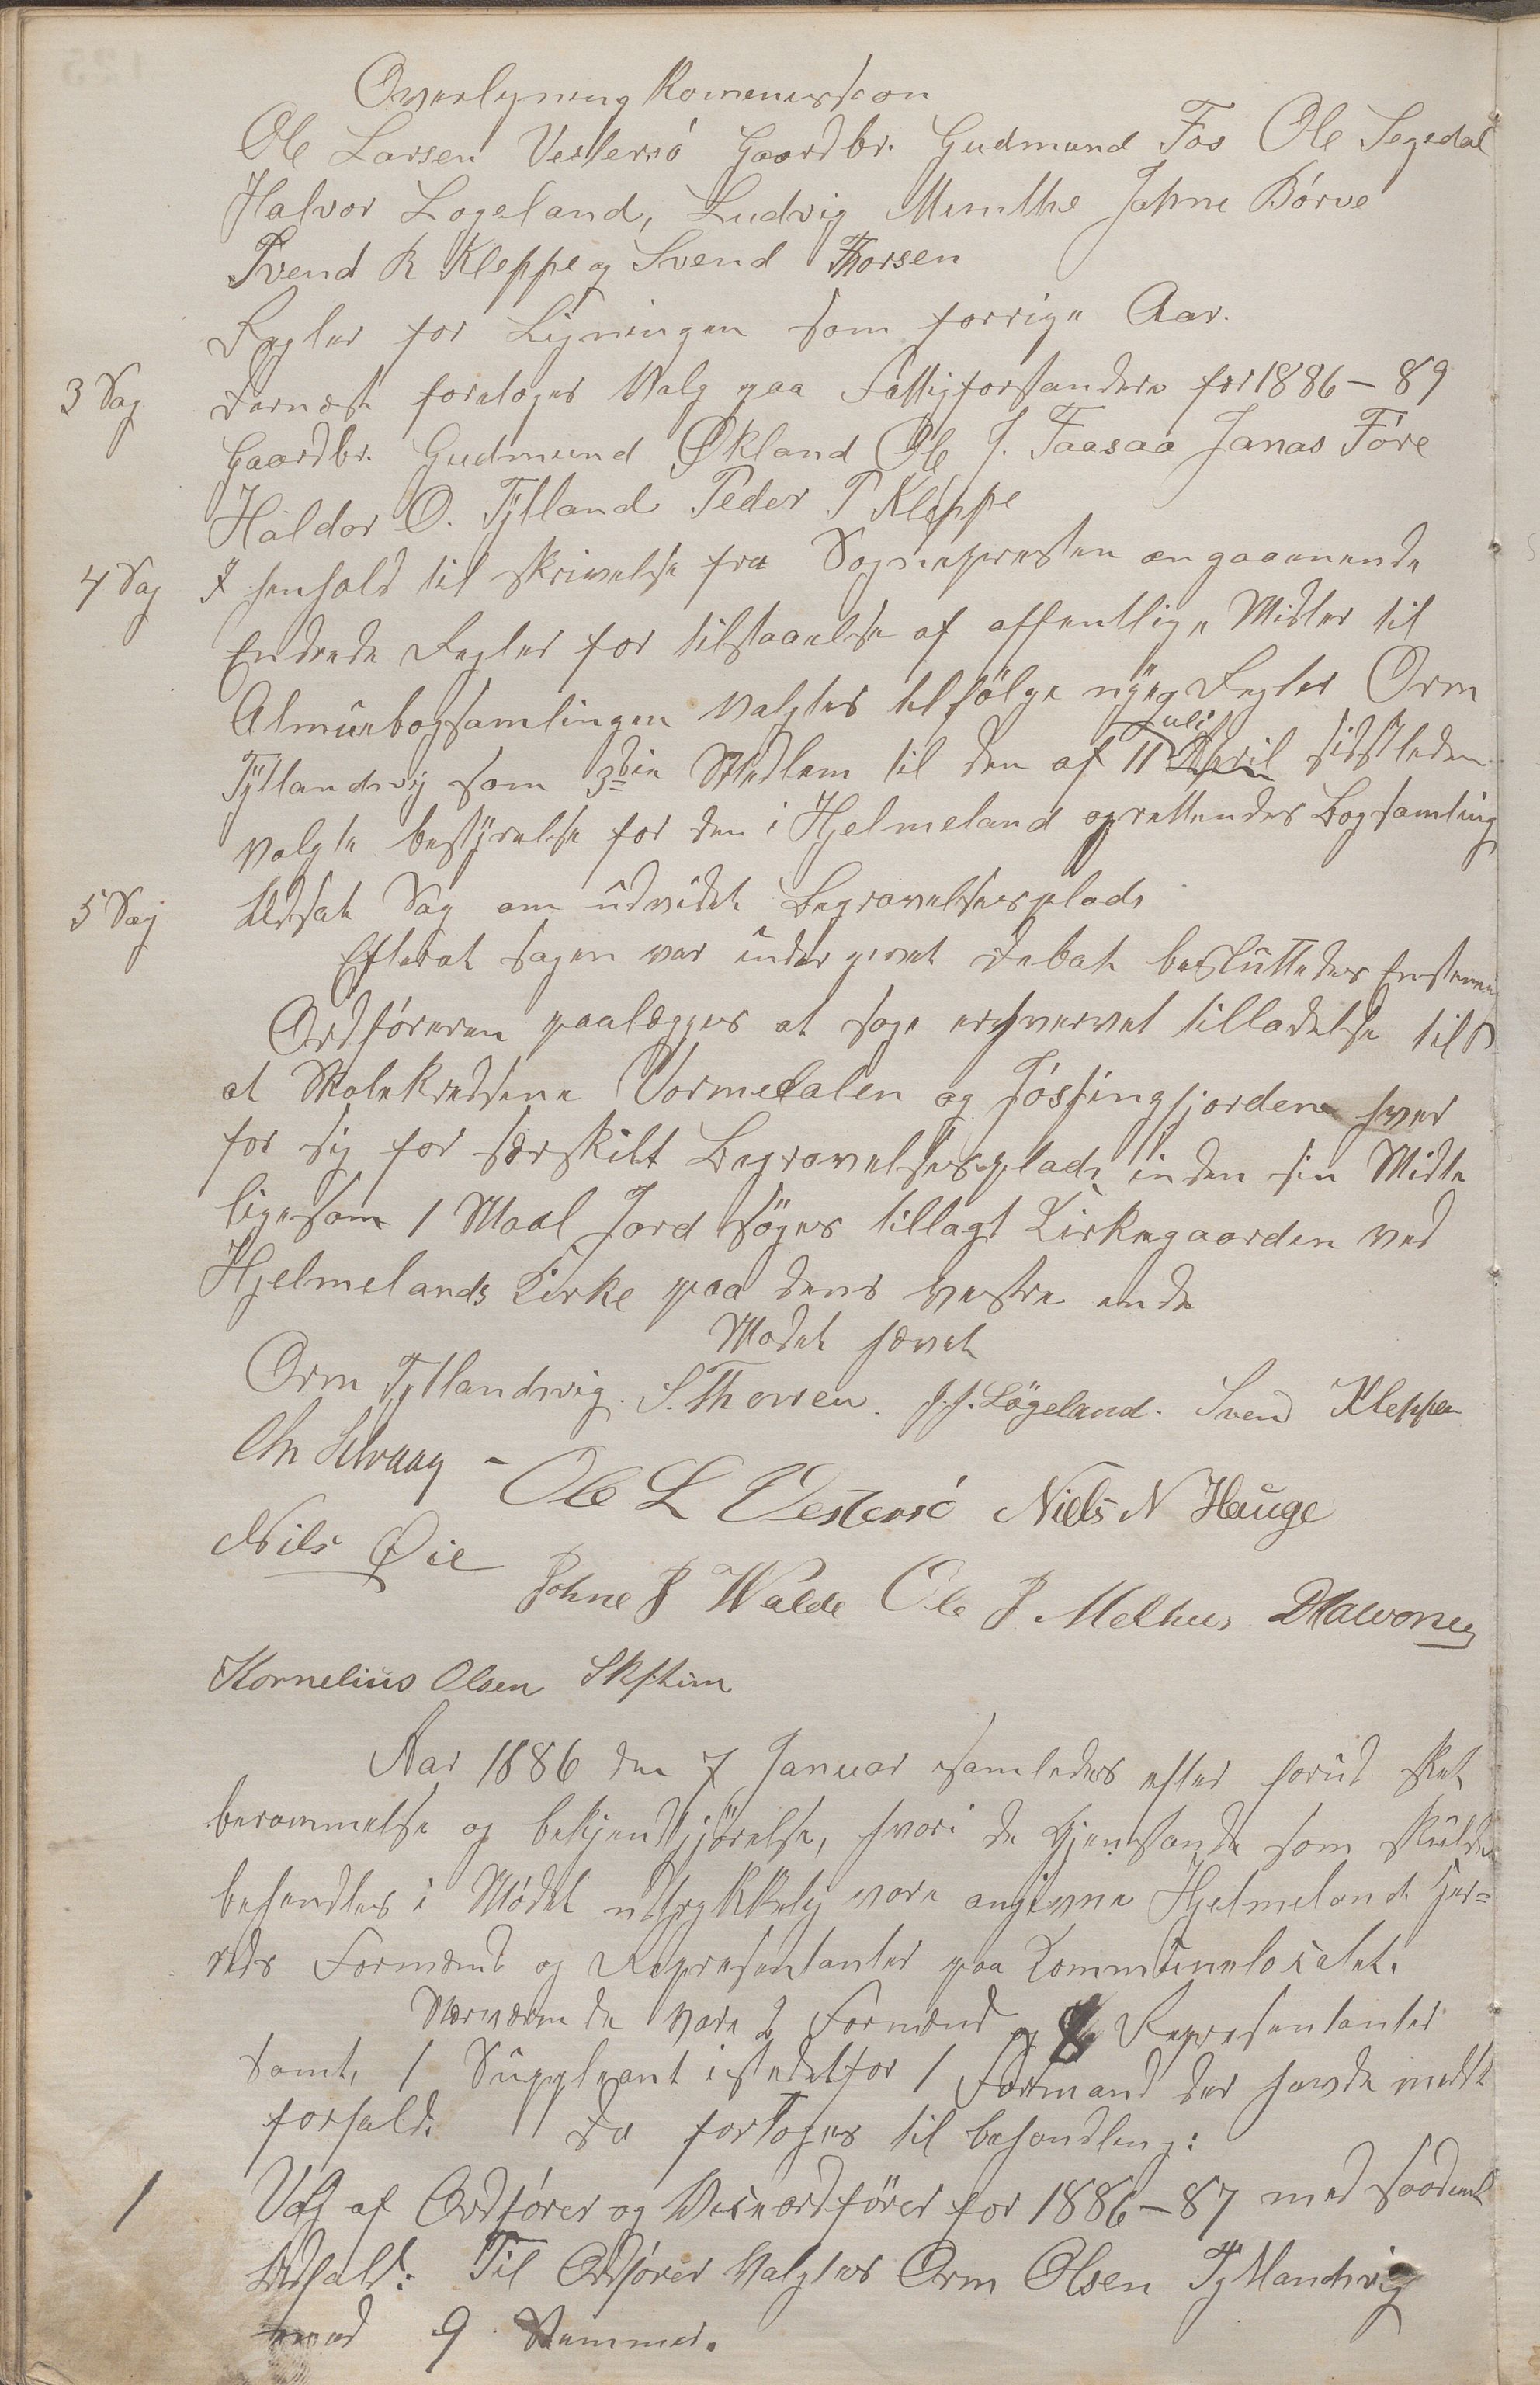 Overlyning Kommission
Ole Larsen Vestersö Gaardbr. Gudmund Fos Ole Segedal
Halvor Logeland, Ludvig Munthe Johne Börve
Svend R Kleppe og Svend Thorsen
Regler for Ligningen som forrige Aar.
3 Sag Dernæst foretoges Valg paa Fattigforstandere for 1886-89
Gaardbr. Gudmund Økland Ole J. Taasaa Janas Före
Haldor O. Tytland Peder P Kleppe
4 Sag I henhold til skrivelse fra Sognepresten angaaennde
Endrede Regler for tilstaaelse af offentlige Midler til
Almuebogsamlingen valgtes tilfölge nye Regler Orm
Juli
Tytlandsvig som 3die Medlem til den af 11 April sidstleden
valgte bestyrelse for den i Hjelmeland oprettendes Bogsamling
5 Sag Udsat Sag om udvidet Begravelsesplads
Efterat sagen var under givet Debat besluttedes Enstem
Ordföreren paalægges at søge erhvervet tilladelse til
at Skolekredsene Vormedalen og Jösfingfjordene hver
for sig for særskilt Begravelsesplads inden sin Midte
ligesom 1 Maal Jord söges tillagt Kirkegaarden ved
Hjelmelands Kirke paa dens vestre ende
Mødet hævet
Orm Tytlandsvig. S. Thorsen. J.J. Lögeland. Svend Kleppen
Ole L Vestersö Niels N Hauge
Nils Øie
Johne J Walde Ole J Melhus
Kornelius Olsen
Aar 1886 den 7 Januar samledes efter forud sket
berammelse og bekjendtgjörelse, hvori de Gjenstande som skulde
behandles i Mødet udtrykkelig vare angivne Hjelmeland Her=
reds Formænd og Repræsentanter paa Kommunelokalet.
Nærværende vare 2 Formænd og 8 Representanter
samt 1 Suppleant istedetfor 1 Formand der havde meldt
forfald. Da fortoges til behandling:
1 Valg af Ordfører og Viceordförer for 1886-87 med saadant
Udfald: Til Ordförer Valgtes Orm Olsen Tytlandsvig
med 9 Stemmer.